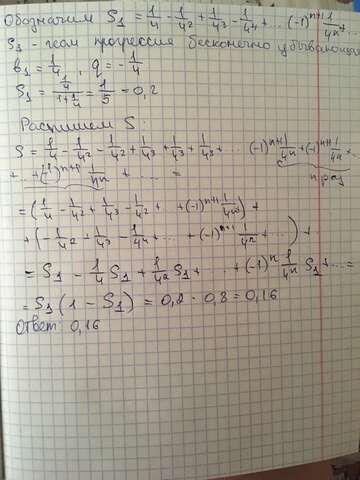 Обозначим S₁ = 1/4 - 1/4² + 1/4³ - 1/4⁴ + ... (-1)ⁿ⁺¹ 1/4ⁿ + ...
S₁ - геом прогрессия бесконечно убывающая
b₁ = 1/4, q = -1/4
S₁ = (1/4)/(1+1/4) = 1/5 = 0,2
Распишем S:
S = 1/4 - 1/4² - 1/4² + 1/4³ + 1/4³ + 1/4³ + ... (-1)ⁿ⁺¹ 1/4ⁿ + (-1)ⁿ⁺¹ 1/4ⁿ +
+ ... +(-1)ⁿ⁺¹ 1/4ⁿ + ... =
n раз
= (1/4 - 1/4² + 1/4³ - 1/4² + + (-1)ⁿ⁺¹ 1/4ⁿ) +
+ (- 1/4² + 1/4³ - 1/4⁴ + ... + (-1)ⁿ⁺¹ 1/4ⁿ + ...) +
= S₁ - 1/4 S₁ + 1/4² S₁ + ... + (-1)ⁿ 1/4ⁿ S₁ + ... =
= S₁ (1 - S₁) = 0,2 · 0,8 = 0,16
Ответ: 0,16